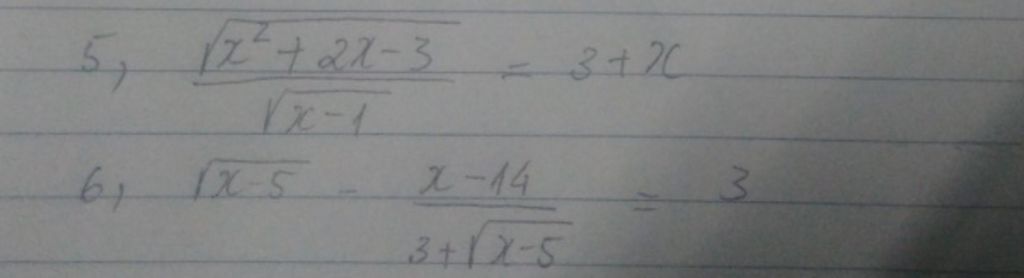 5, √(x²+2x-3) / √(x-1) = 3+x
6, √(x-5) - (x-14) / (3+√(x-5)) = 3